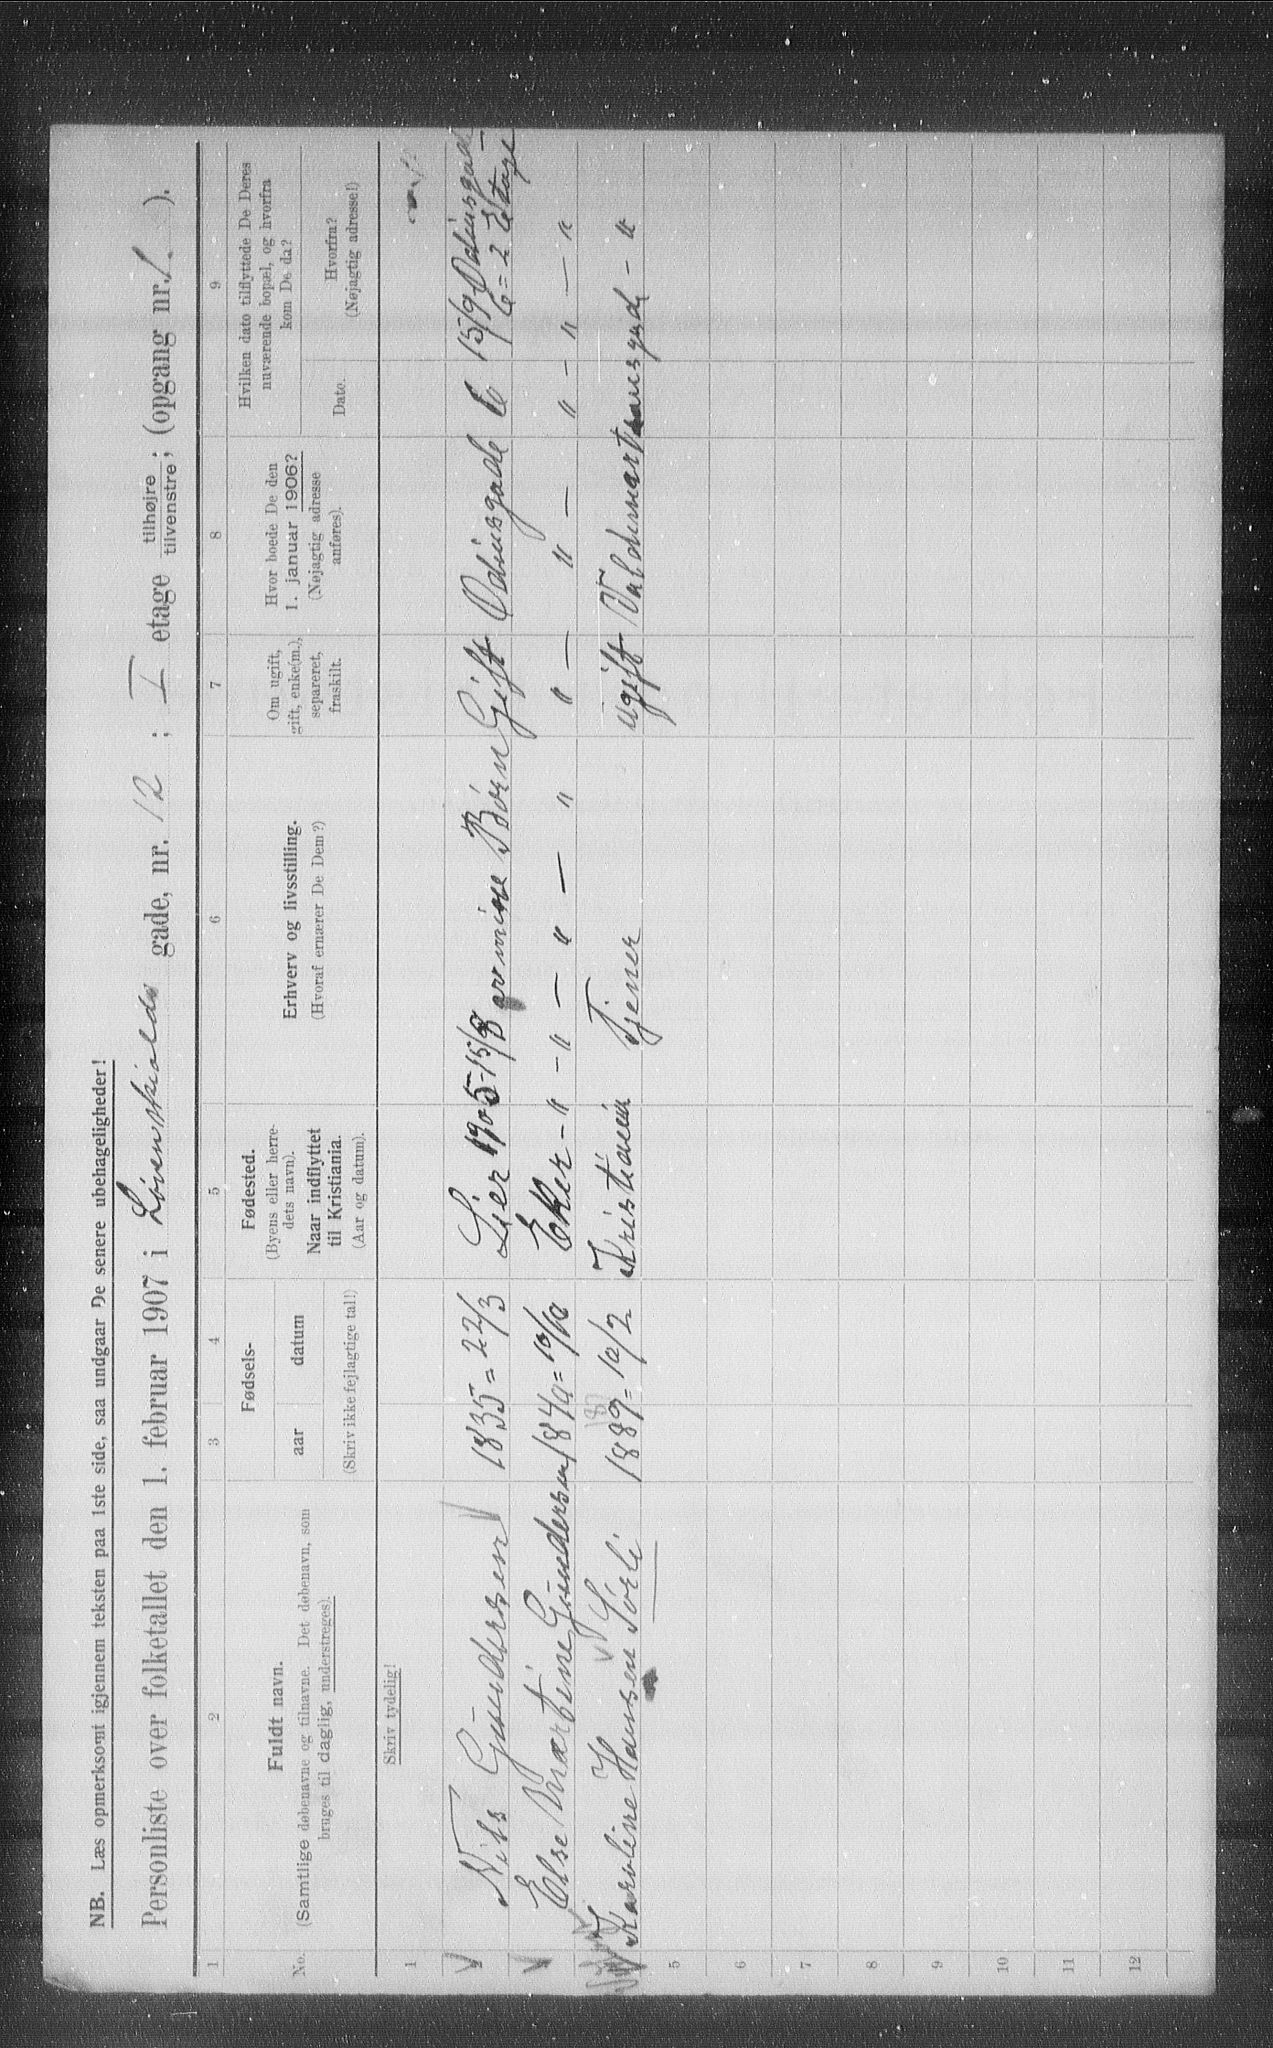 NB. Læs opmerksomt igjennem teksten paa 1ste side, saa undgaar De senere ubehageligheder!
Personliste over folketallet den 1. februar 1907 i Løvenskiolds gade, nr. 12 ; I etage tilhøjre tilvenstre; (opgang nr. 1. ).
1 2 3 4 5 6 7 8 9
No.
Fuldt navn.
(Samtlige døbenavne og tilnavne. Det døbenavn, som
bruges til daglig, understreges).
Fødsels-
aar datum
(Skriv ikke fejlagtige tal!)
Fødested.
(Byens eller herre-
dets navn).
Naar indflyttet
til Kristiania.
(Aar og datum).
Erhverv og livsstilling.
(Hvoraf ernærer De Dem?)
Om ugift,
gift, enke(m.),
separeret,
fraskilt.
Hvor boede De den
1. januar 1906?
(Nøjagtig adresse
anføres).
Hvilken dato tilflyttede De Deres
nuværende bopæl, og hvorfra
kom De da?
Dato.
Hvorfra?
(Nøjagtig adresse!)
Skriv tydelig!
1
2 Nils Gundersen 1835 = 22/3 Lier 1905-15/8 mine Börn Gift Odinsgade 6 15/9 Odinsgade
6 = 2 Etage
Else Martine Gundersen 1840 = 10/10 Eker - " - " - " - " " - " - " - " - "
Karoline Hansen Sörli 1889 = 10/2 Kristiania Tjener ugift Valdemartransgade - "
5
6
7
8
9
10
11
12